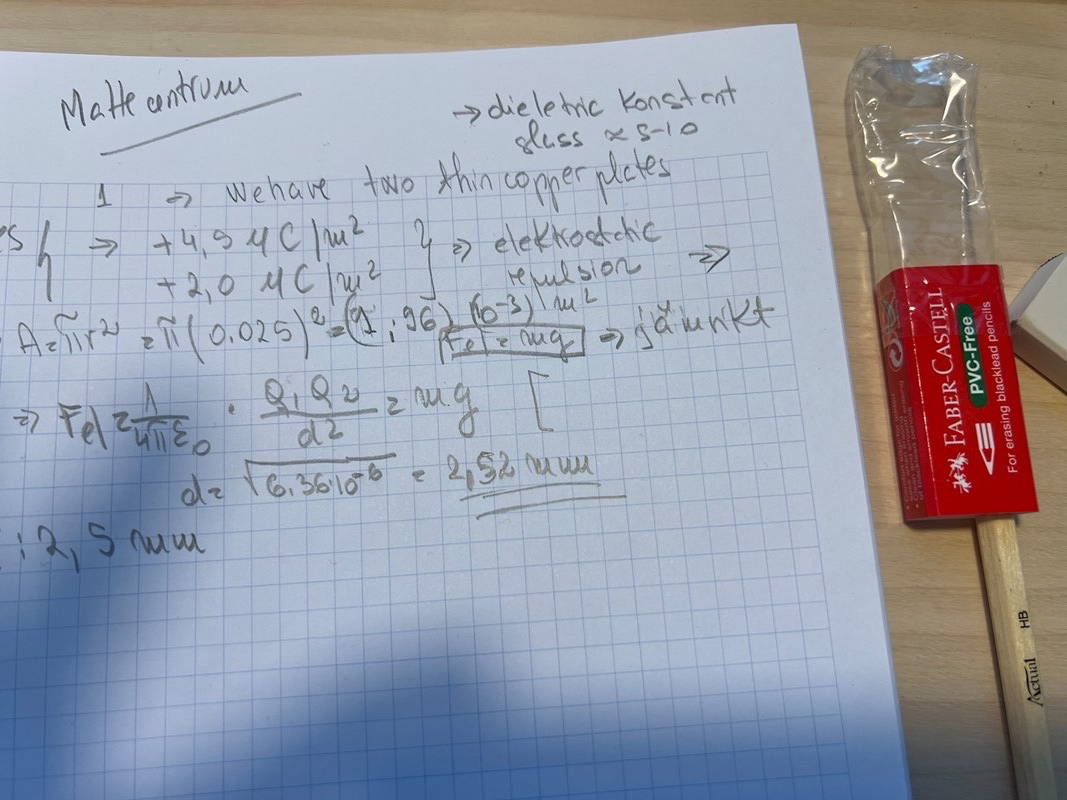 Mattecentrum
→ dieletric konstant
glass ≈ 5-10
1 ⇒ We have two thin copper plates
es { ⇒ +4,9 μC/m² } ⇒ elektrostatic
+2,0 μC/m² repulsion ⇒
A = πr² = π(0.025)² = (1,96) (10-3) m²
Fel = mg ⇒ jämnkt
⇒ Fel = 1/4πε₀ · Q₁Q₂/d² = mg [
d = √6.36·10⁻⁶ = 2,52 mm
: 2,5 mm
FABER-CASTELL
PVC-Free
For erasing blacklead pencils
Actual HB